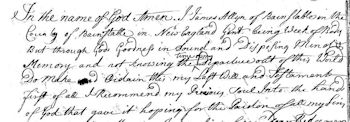 In the name of God Amen. I James Allyn of Barnstable in the
County of Barnstable in New England Gent being Weak of Body
But through Gods Goodness in Sound and Disposing Mind &
Memory and not knowing the Departure out of this World
Do Make and Ordain this my Last Will and Testament
First of all I Recommend my Soul Into the hands
of God that gave it hoping for the Pardon of all my Sins